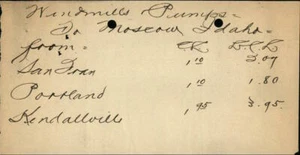 Windmills Pumps -
To Moscow Idaho -
from - CL L.C.L
San Fran 1,10 3.07
Portland 1,10 1.80
Kendallvill 1,95 3.95